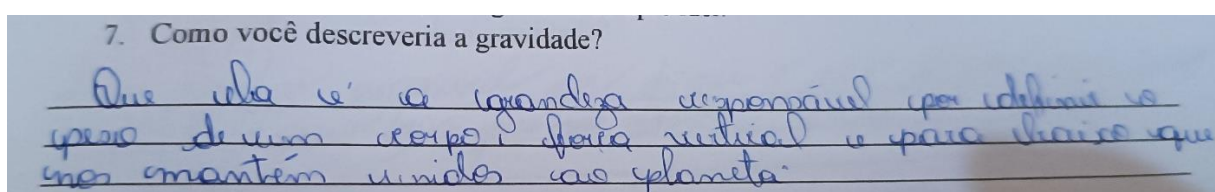 7. Como você descreveria a gravidade?
Que ela é a grandeza responsável por definir o
peso de um corpo; força vertical e para baixo que
nos mantém unidos ao planeta.